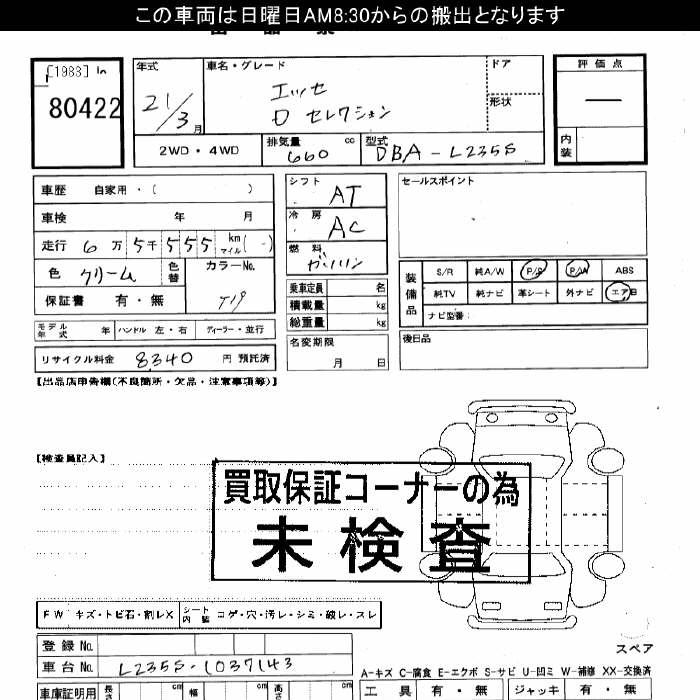 この車両は日曜日AM8:30からの搬出となります
[1983]
80422
年式
21/3月
車名・グレード
エッセ
D セレクション
ドア
形状
評価点
—
内装
2WD・4WD
排気量 660 cc
型式 DBA-L235S
車歴 自家用・( )
車検 年 月
走行 6万5千555 km マイル( - )
色 クリーム 色替
カラーNo. T19
保証書 有・無
シフト AT
冷房 AC
燃料 ガソリン
乗車定員 名
積載量 kg
総重量 kg
セールスポイント
装備品
S/R 純A/W P/S P/W ABS
純TV 純ナビ 革シート 外ナビ エアB
ナビ型番:
モデル年式 年 ハンドル 左・右 ディーラー・並行
名変期限 月 日
後日品
リサイクル料金 8340 円 預託済
【出品店申告欄(不良箇所・欠品・注意事項等)】
【検査員記入】
買取保証コーナーの為
未検査
FW キズ・トビ石・割レX シート内装 コゲ・穴・汚レ・シミ・破レ・スレ
登録No.
車台No. L235S-1037143
スペア
A-キズ C-腐食 E-エクボ S-サビ U-凹ミ W-補修 XX-交換済
車庫証明用 長さ cm 幅 cm 高さ cm
工具 有・無 ジャッキ 有・無